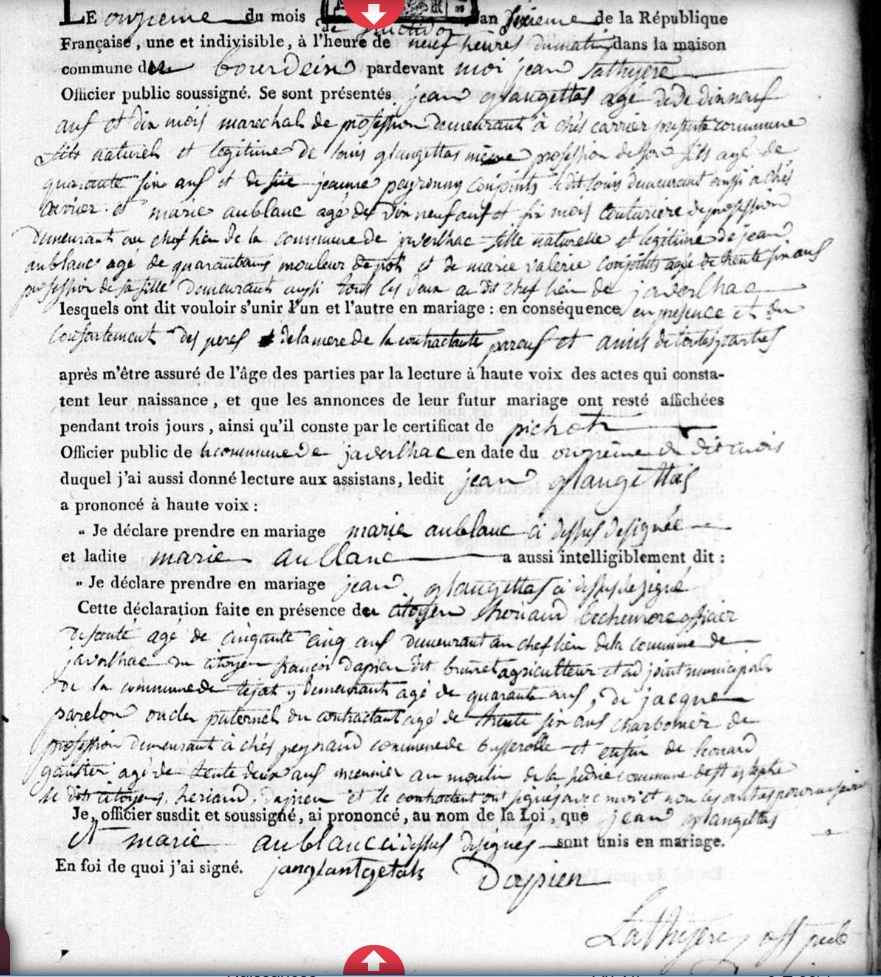 LE onzieme du mois de fructidor an sixieme de la République
Française, une et indivisible, à l'heure de neuf heures du matin dans la maison
commune du bourdeix pardevant moi jean Lathiere
Officier public soussigné. Se sont présentés jean glangettas agé de dixneuf
ans et dix mois marechal de profession demeurant à chés carrier presente commune
fils naturel et legitime de louis glangettas meme profession de son fils agé de
quarante six ans et de jeanne peyronny conjoints le dit louis demeurant aussi à chés
carrier et marie aublanc agé de dix neuf ans et six mois couturiere de profession
demeurant au chef lieu de la commune de javerlhac fille naturelle et legitime de jean
aublanc agé de quarante ans mouleur de pots et de marie valerie conjoints agé de trente six ans
profession de sa fille demeurant aussi tous les deux au dit chef lieu de javerlhac
lesquels ont dit vouloir s'unir l'un et l'autre en mariage : en conséquence, en presence et du
consentement des peres et de la mere de la contractante parens et amis de toutes parties
après m'être assuré de l'âge des parties par la lecture à haute voix des actes qui consta-
tent leur naissance, et que les annonces de leur futur mariage ont resté affichées
pendant trois jours, ainsi qu'il conste par le certificat de pichot
Officier public de la commune de javerlhac en date du onzieme du dit mois
duquel j'ai aussi donné lecture aux assistans, ledit jean glangettas
a prononcé à haute voix :
" Je déclare prendre en mariage marie aublanc ci dessus designée
et ladite marie aublanc a aussi intelligiblement dit :
" Je déclare prendre en mariage jean glangettas ci dessus designé
Cette déclaration faite en présence du citoyen heriaud officier
de santé agé de cinquante cinq ans demeurant au chef lieu de la commune de
javerlhac du citoyen françois dapien dit brunet agriculteur et adjoint municipal
de la commune de y demeurant agé de quarante ans, de jacque
parelon oncle paternel du contractant agé de trente six ans charbonier de
profession demeurant à chés peynaud commune de busserolle et enfin de leonard
gautier agé de trente deux ans meunier au moulin de la commune de st estephe
le dit citoyens heriaud, dapien et le contractant ont signés avec moi et non les autres pour ne savoir
Je, officier susdit et soussigné, ai prononcé, au nom de la Loi, que jean glangettas
et marie aublanc ci dessus designés sont unis en mariage.
En foi de quoi j'ai signé. janglantgetas Dapien
Lathiere off pub